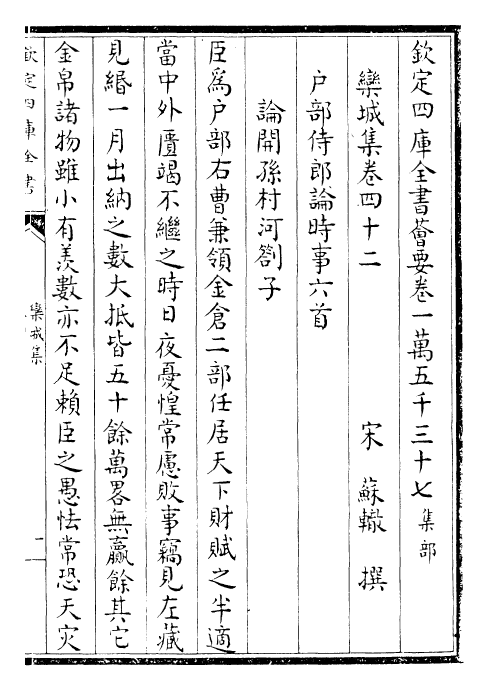 欽定四庫全書薈要卷一萬五千三十七 集部
欒城集卷四十二 宋 蘇轍 撰
户部侍郎論時事六首
論開孫村河劄子
臣爲户部右曹兼領金倉二部任居天下財賦之半適
當中外匱竭不繼之時日夜憂惶常慮敗事竊見左藏
見緡一月出納之數大抵皆五十餘萬畧無贏餘其它
金帛諸物雖小有羡數亦不足賴臣之愚怯常恐天灾
欽定四庫全書
欒城集